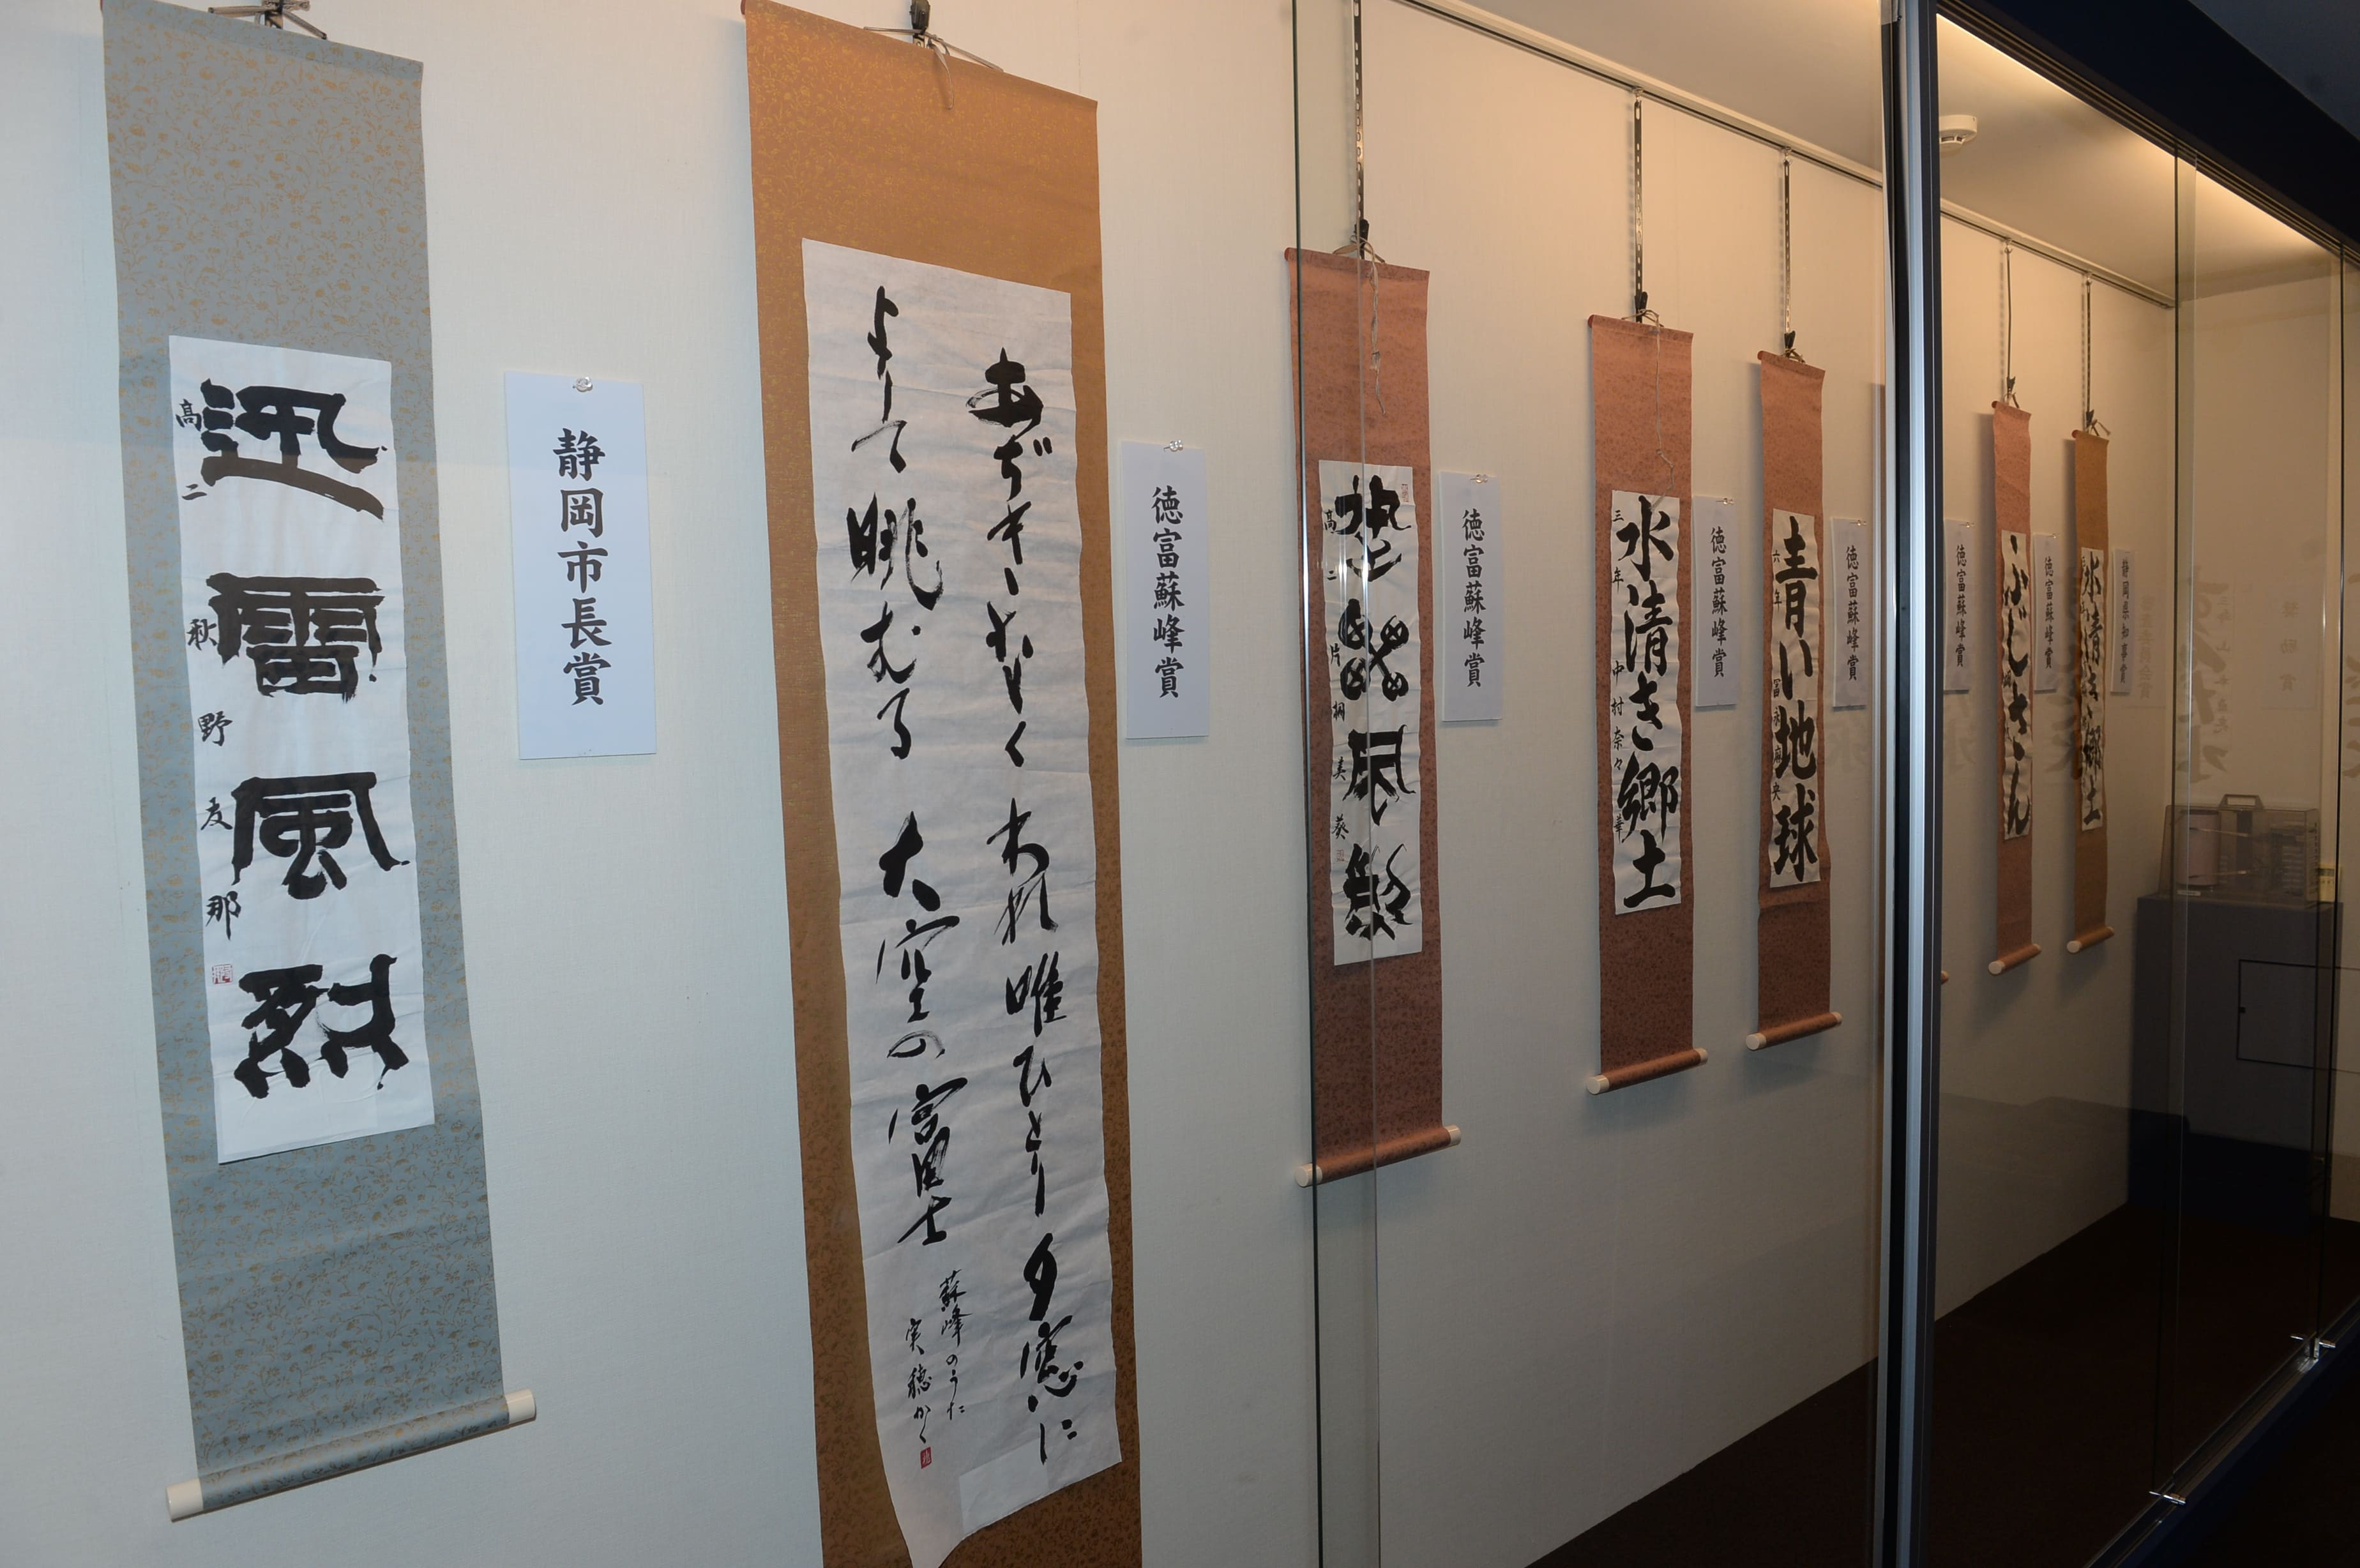 迅雷風烈
高二 秋野友那
静岡市長賞
あぢきなく われ 唯ひとり 夕窓に
よりて 眺むる 大空の富士
蘇峰のうた
実穂かく
徳富蘇峰賞
高二 片桐美葵
徳富蘇峰賞
水清き郷土
三年 中村奈々華
徳富蘇峰賞
青い地球
六年
徳富蘇峰賞
徳富蘇峰賞
ふじさん
徳富蘇峰賞
水清き郷土
静岡県知事賞